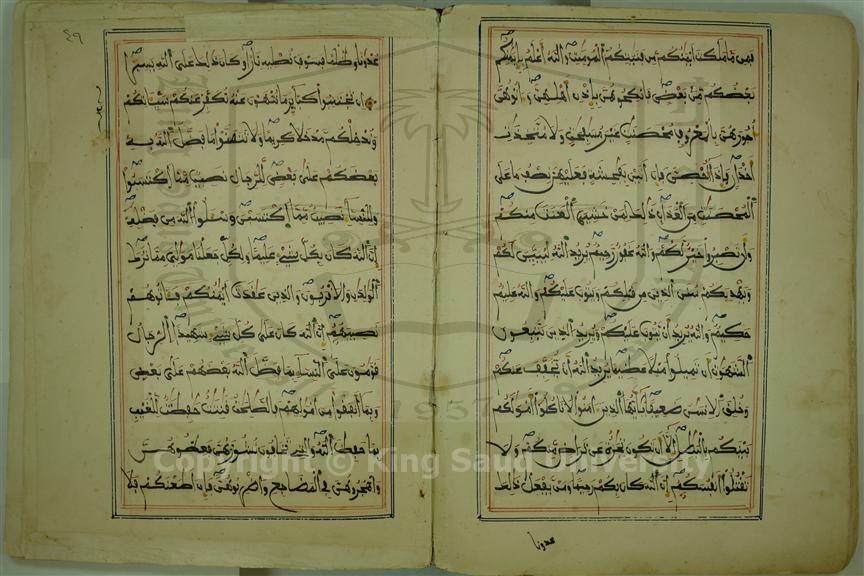 فمن ما ملكت ايمنكم من فتيتكم المومنت والله اعلم بايمنكم
بعضكم من بعض فانكحوهن باذن اهلهن واتوهن
اجورهن بالمعروف محصنت غير مسفحت ولا متخذت
اخدان فاذا احصن فان اتين بفحشة فعليهن نصف ما على
المحصنت من العذاب ذلك لمن خشي العنت منكم
وان تصبروا خير لكم والله غفور رحيم يريد الله ليبين لكم
ويهديكم سنن الذين من قبلكم ويتوب عليكم والله عليم
حكيم والله يريد ان يتوب عليكم ويريد الذين يتبعون
الشهوت ان تميلوا ميلا عظيما يريد الله ان يخفف عنكم
وخلق الانسن ضعيفا يايها الذين امنوا لا تاكلوا امولكم
بينكم بالبطل الا ان تكون تجرة عن تراض منكم ولا
تقتلوا انفسكم ان الله كان بكم رحيما ومن يفعل ذلك
عدونا
٤٩
عدونا وظلما فسوف نصليه نارا وكان ذلك على الله يسيرا
ان تجتنبوا كباير ما تنهون عنه نكفر عنكم سياتكم
وندخلكم مدخلا كريما ولا تتمنوا ما فضل الله به
بعضكم على بعض للرجال نصيب مما اكتسبوا
وللنساء نصيب مما اكتسبن وسلوا الله من فضله
ان الله كان بكل شيء عليما ولكل جعلنا مولي مما ترك
الولدن والاقربون والذين عقدت ايمنكم فاتوهم
نصيبهم ان الله كان على كل شيء شهيدا الرجال
قومون على النساء بما فضل الله بعضهم على بعض
وبما انفقوا من امولهم فالصلحت قنتت حفظت للغيب
بما حفظ الله والتي تخافون نشوزهن فعظوهن
واهجروهن في المضاجع واضربوهن فان اطعنكم فلا
1957
Copyright © King Saud University